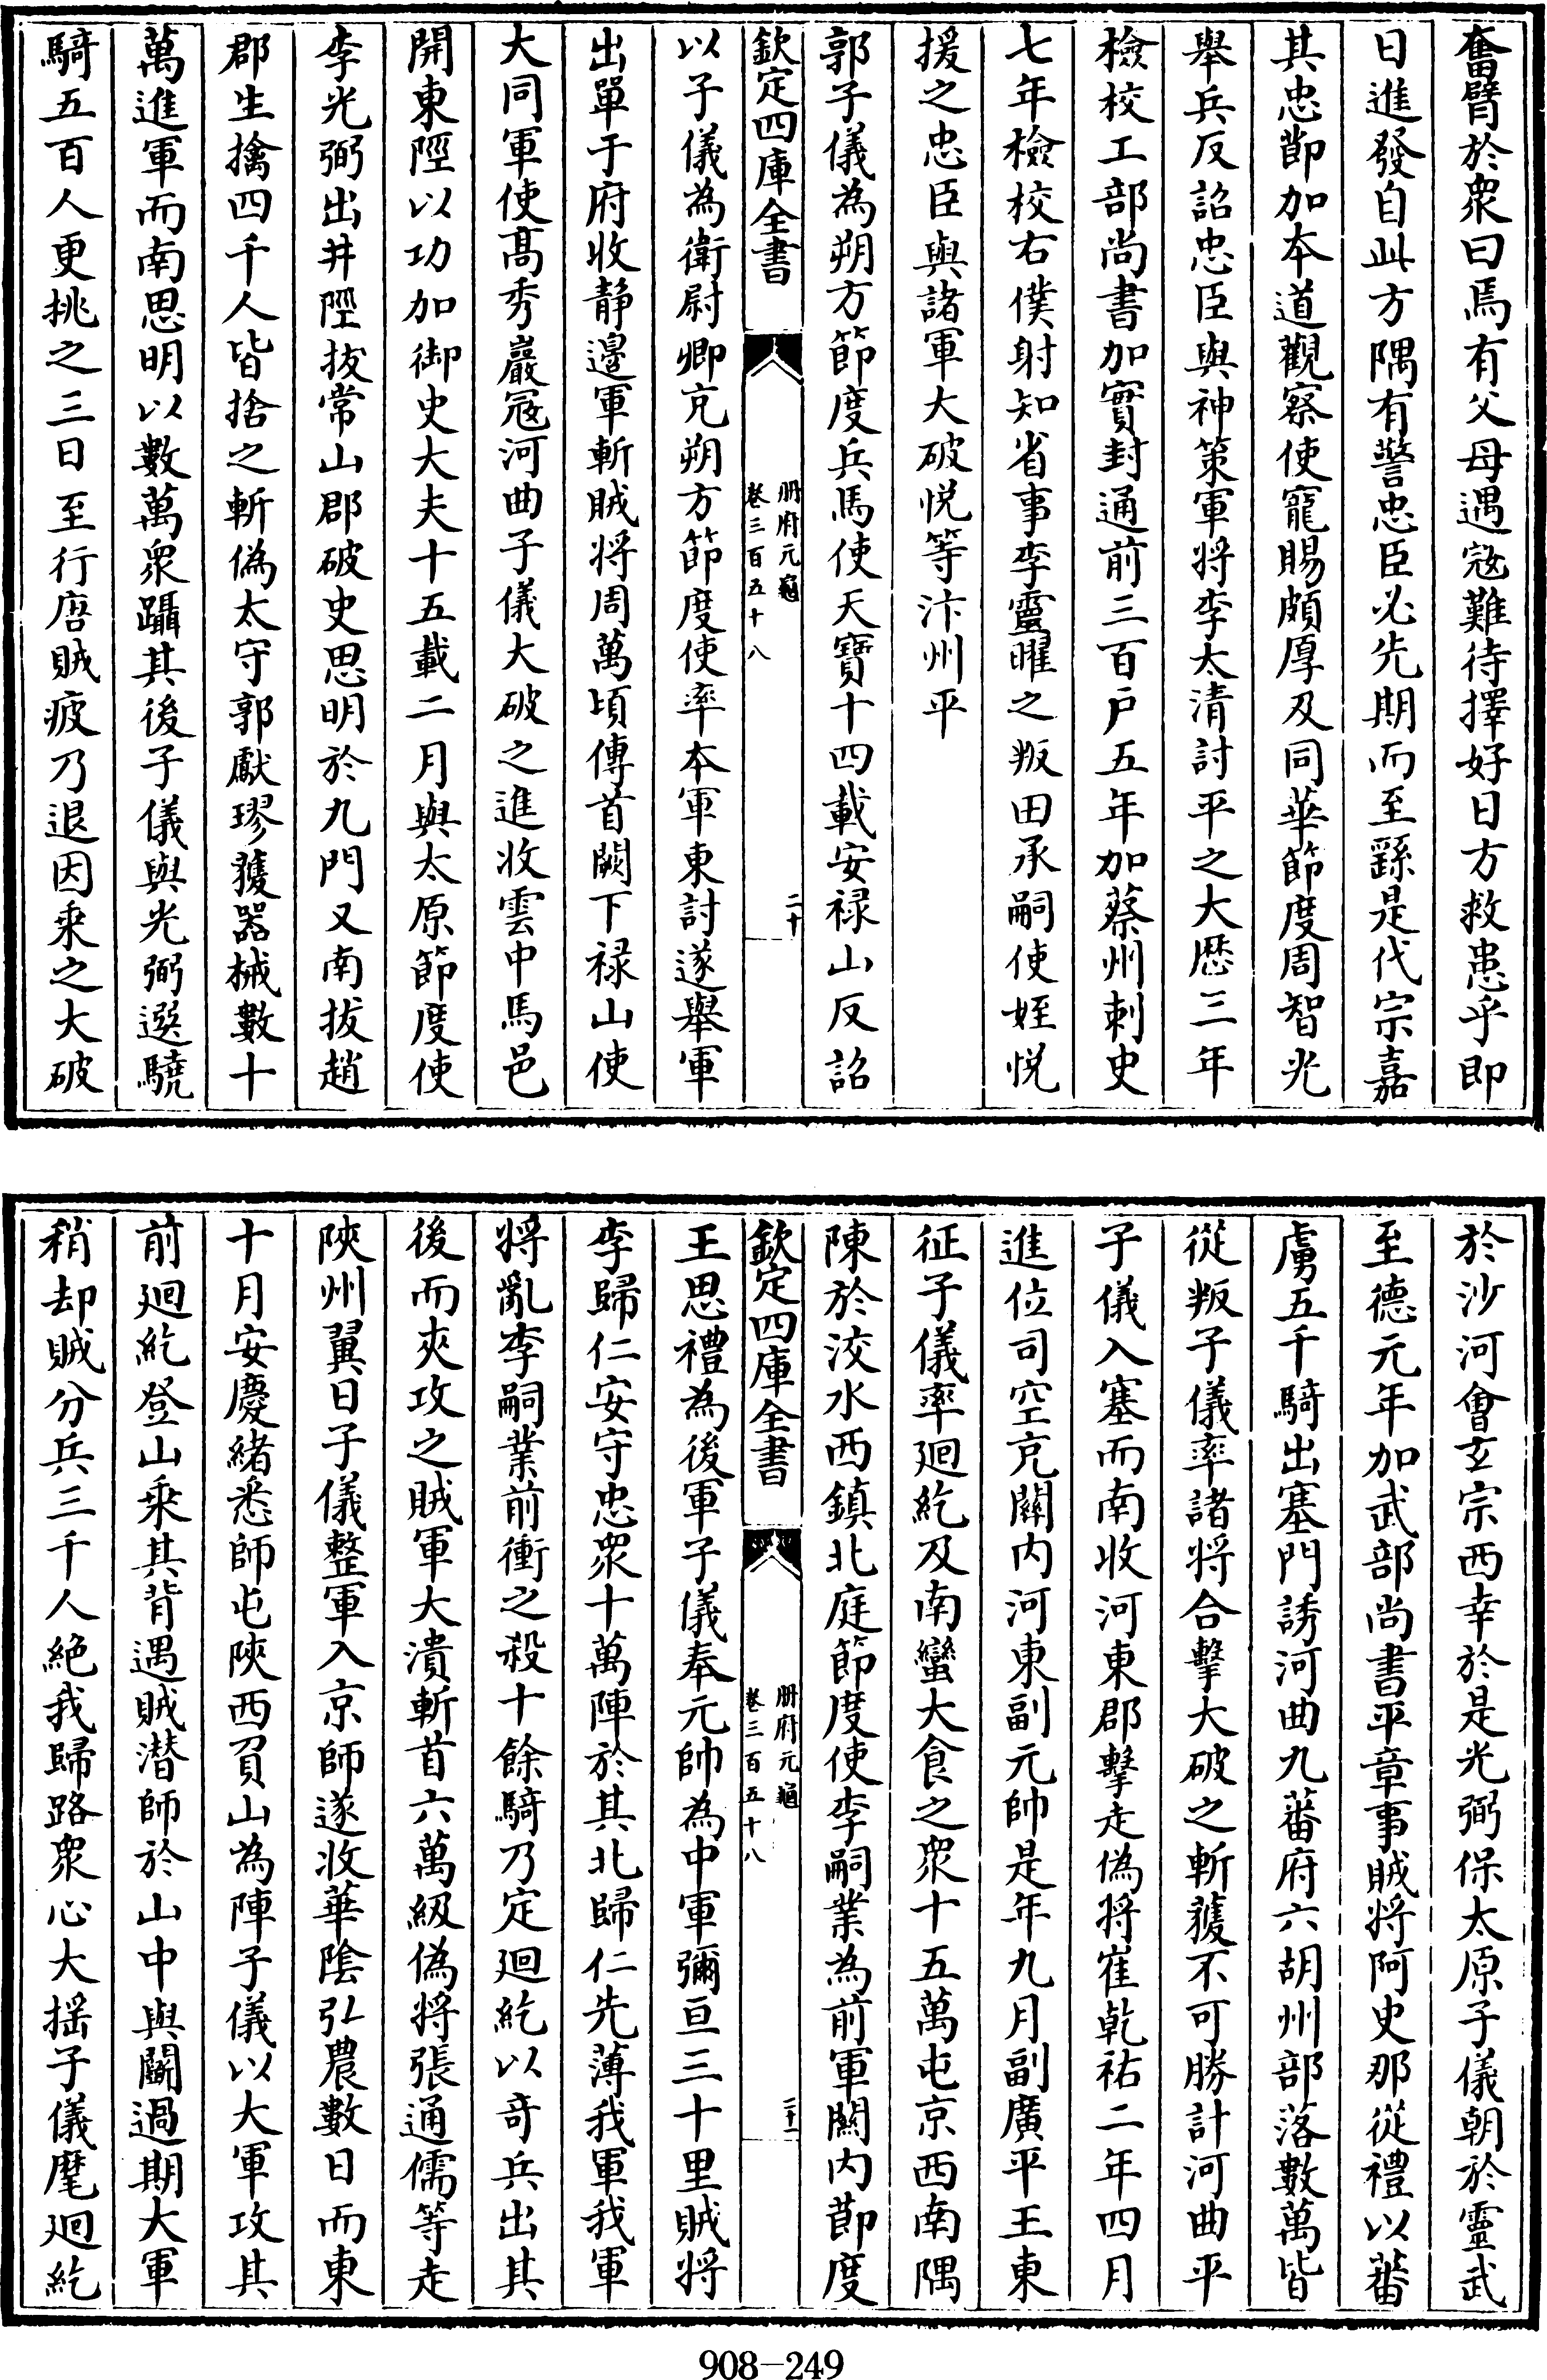 奮臂於衆曰焉有父母遇寇難待擇好日方救患乎即
日進發自此方隅有警忠臣必先期而至繇是代宗嘉
其忠節加本道觀察使寵賜頗厚及同華節度周智光
舉兵反詔忠臣與神策軍将李太清討平之大歴三年
檢校工部尚書加實封通前三百户五年加蔡州刺史
七年檢校右僕射知省事李靈曜之叛田承嗣使姪悦
援之忠臣與諸軍大破悦等汴州平
郭子儀為朔方節度兵馬使天寶十四載安禄山反詔
欽定四庫全書
册府元龜
卷三百五十八
二十
以子儀為衛尉卿充朔方節度使率本軍東討遂舉軍
出單于府收静邊軍斬賊将周萬頃傳首闕下禄山使
大同軍使髙秀巖寇河曲子儀大破之進收雲中馬邑
開東陘以功加御史大夫十五載二月與太原節度使
李光弼出井陘拔常山郡破史思明於九門又南拔趙
郡生擒四千人皆捨之斬偽太守郭獻璆獲器械數十
萬進軍而南思明以數萬衆躡其後子儀與光弼選驍
騎五百人更挑之三日至行唐賊疲乃退因乘之大破
於沙河會𤣥宗西幸於是光弼保太原子儀朝於靈武
至德元年加武部尚書平章事賊将阿史那從禮以蕃
虜五千騎出塞門誘河曲九蕃府六胡州部落數萬皆
從叛子儀率諸将合擊大破之斬獲不可勝計河曲平
子儀入塞而南收河東郡擊走偽将崔乾祐二年四月
進位司空充關内河東副元帥是年九月副廣平王東
征子儀率廻紇及南蠻大食之衆十五萬屯京西南隅
陳於洨水西鎮北庭節度使李嗣業為前軍關内節度
欽定四庫全書
册府元龜
卷三百五十八
二十一
王思禮為後軍子儀奉元帥為中軍彌亘三十里賊将
李歸仁安守忠衆十萬陣於其北歸仁先薄我軍我軍
将亂李嗣業前衝之殺十餘騎乃定廻紇以竒兵出其
後而夾攻之賊軍大潰斬首六萬級偽将張通儒等走
陜州翼日子儀整軍入京師遂收華隂弘農數日而東
十月安慶緒悉師屯陜西負山為陣子儀以大軍攻其
前廻紇登山乘其背遇賊潜師於山中與鬭過期大軍
稍却賊分兵三千人絶我歸路衆心大揺子儀麾廻紇
908-249